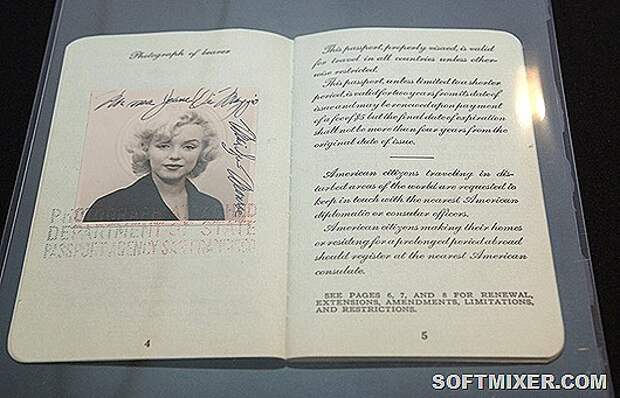 Photograph of bearer
Jeane Di Maggio
Marilyn Monroe
DEPARTMENT OF STATE
PASSPORT AGENCY SAN FRANCISCO
4
This passport, properly visaed, is valid
for travel in all countries unless other-
wise restricted.
This passport, unless limited to a shorter
period, is valid for two years from its date of
issue and may be renewed upon payment
of a fee of $5 but the final date of expiration
shall not be more than four years from the
original date of issue.
American citizens traveling in dis-
turbed areas of the world are requested to
keep in touch with the nearest American
diplomatic or consular officers.
American citizens making their homes
or residing for a prolonged period abroad
should register at the nearest American
consulate.
SEE PAGES 6, 7, AND 8 FOR RENEWAL,
EXTENSIONS, AMENDMENTS, LIMITATIONS,
AND RESTRICTIONS.
5
SOFTMIXER.COM